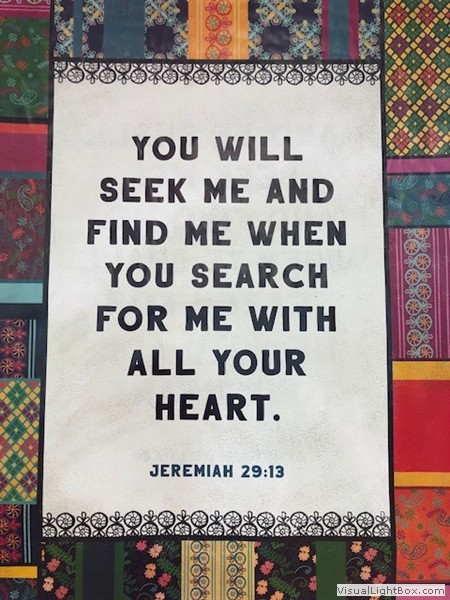 YOU WILL
SEEK ME AND
FIND ME WHEN
YOU SEARCH
FOR ME WITH
ALL YOUR
HEART.
JEREMIAH 29:13
VisualLightBox.com